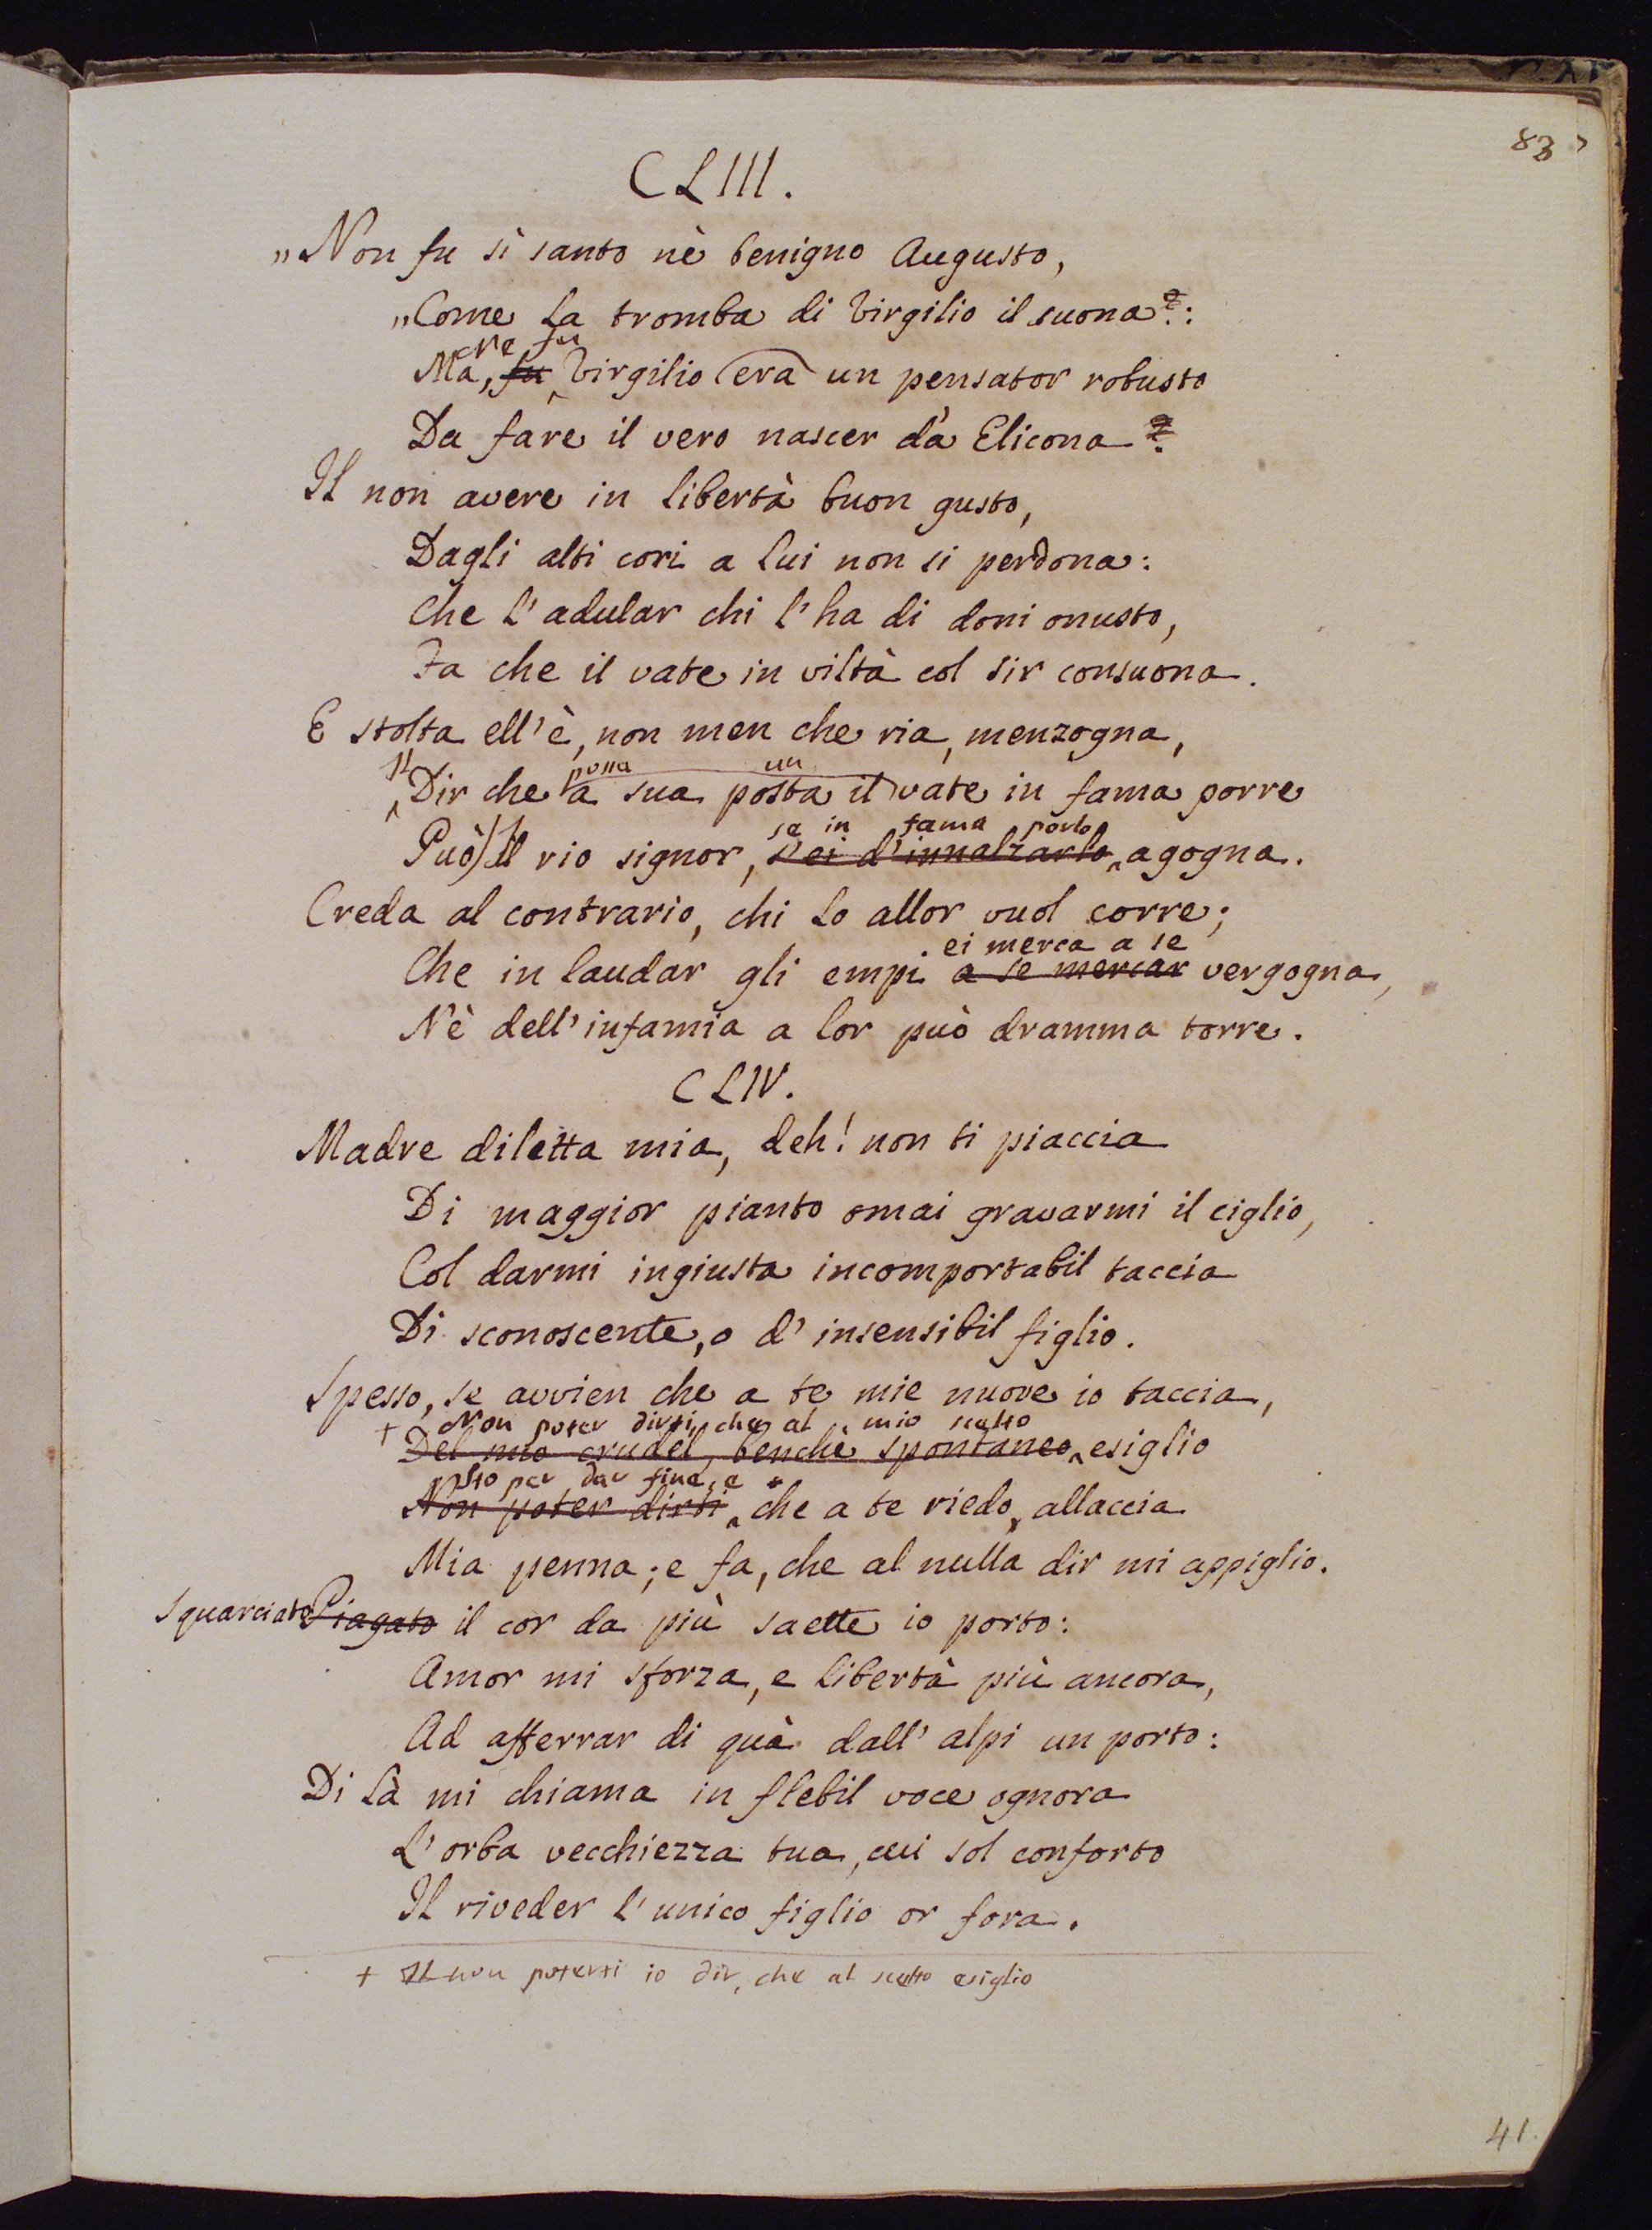 83
CLIII.
„Non fu sì santo nè benigno Augusto,
„Come la tromba di Virgilio il suona:
che fu
Ma, fu Virgilio era un pensator robusto
Da fare il vero nascer da Elicona?
Il non avere in libertà buon gusto,
Dagli alti cori a lui non si perdona:
Che l'adular chi l'ha di doni onusto,
Fa che il vate in viltà col sir consuona.
E stolta ell'è, non men che ria, menzogna,
Il possa un
Dir che a sua posta il vate in fama porre
se in fama porlo
Può Il rio signor, s'ei d'innalzarlo agogna.
Creda al contrario, chi lo allor vuol corre;
ei merca a se
Che in laudar gli empi a se mercar vergogna,
Nè dell'infamia a lor può dramma torre.
CLIV.
Madre diletta mia, deh! non ti piaccia
Di maggior pianto omai gravarmi il ciglio,
Col darmi ingiusta incomportabil taccia
Di sconoscente, o d'insensibil figlio.
Spesso, se avvien che a te mie nuove io taccia,
+ Non poter dirti, che al mio scelto
Del mio crudel, benchè spontaneo esiglio
Sto per dar fine, e
Non poter dirti che a te riedo, allaccia
Mia penna; e fa, che al nulla dir mi appiglio.
Squarciato Piagato il cor da più saette io porto:
Amor mi sforza, e libertà più ancora,
Ad afferrar di quà dall'alpi un porto:
Di là mi chiama in flebil voce ognora
L'orba vecchiezza tua, cui sol conforto
Il riveder l'unico figlio or fora.
+ Il non poterti io dir, che al scelto esiglio
41.